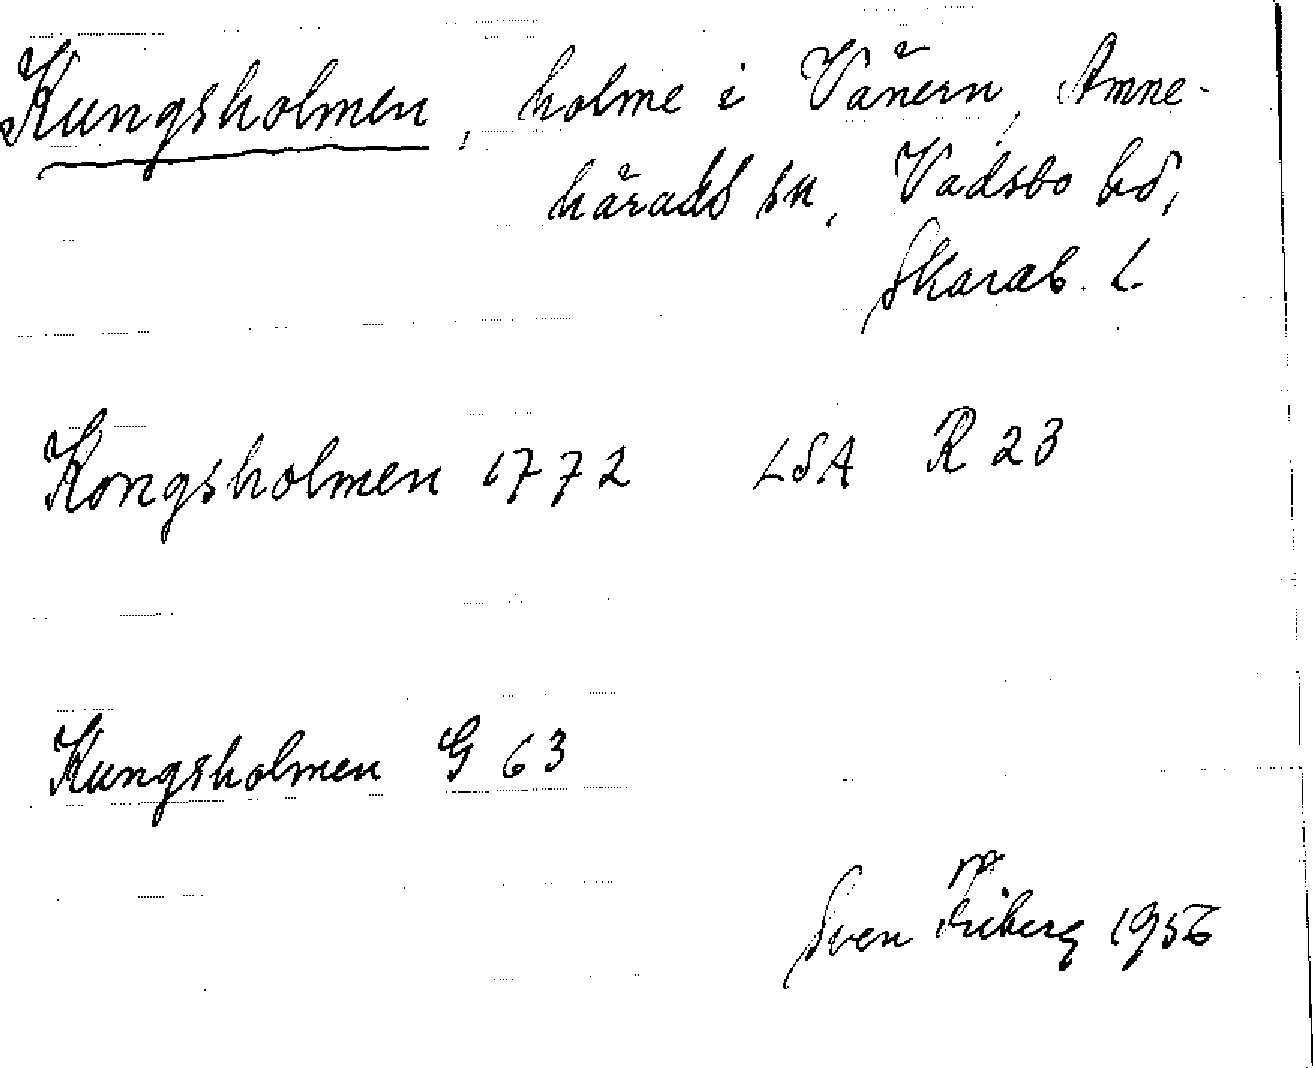 Kungsholmen, holme i Vänern, Amne-
härads sn, Vadsbo hd,
Skarab. l.
Kongsholmen 1772 LSA R 23
Kungsholmen G 63
Sven Friberg 1956